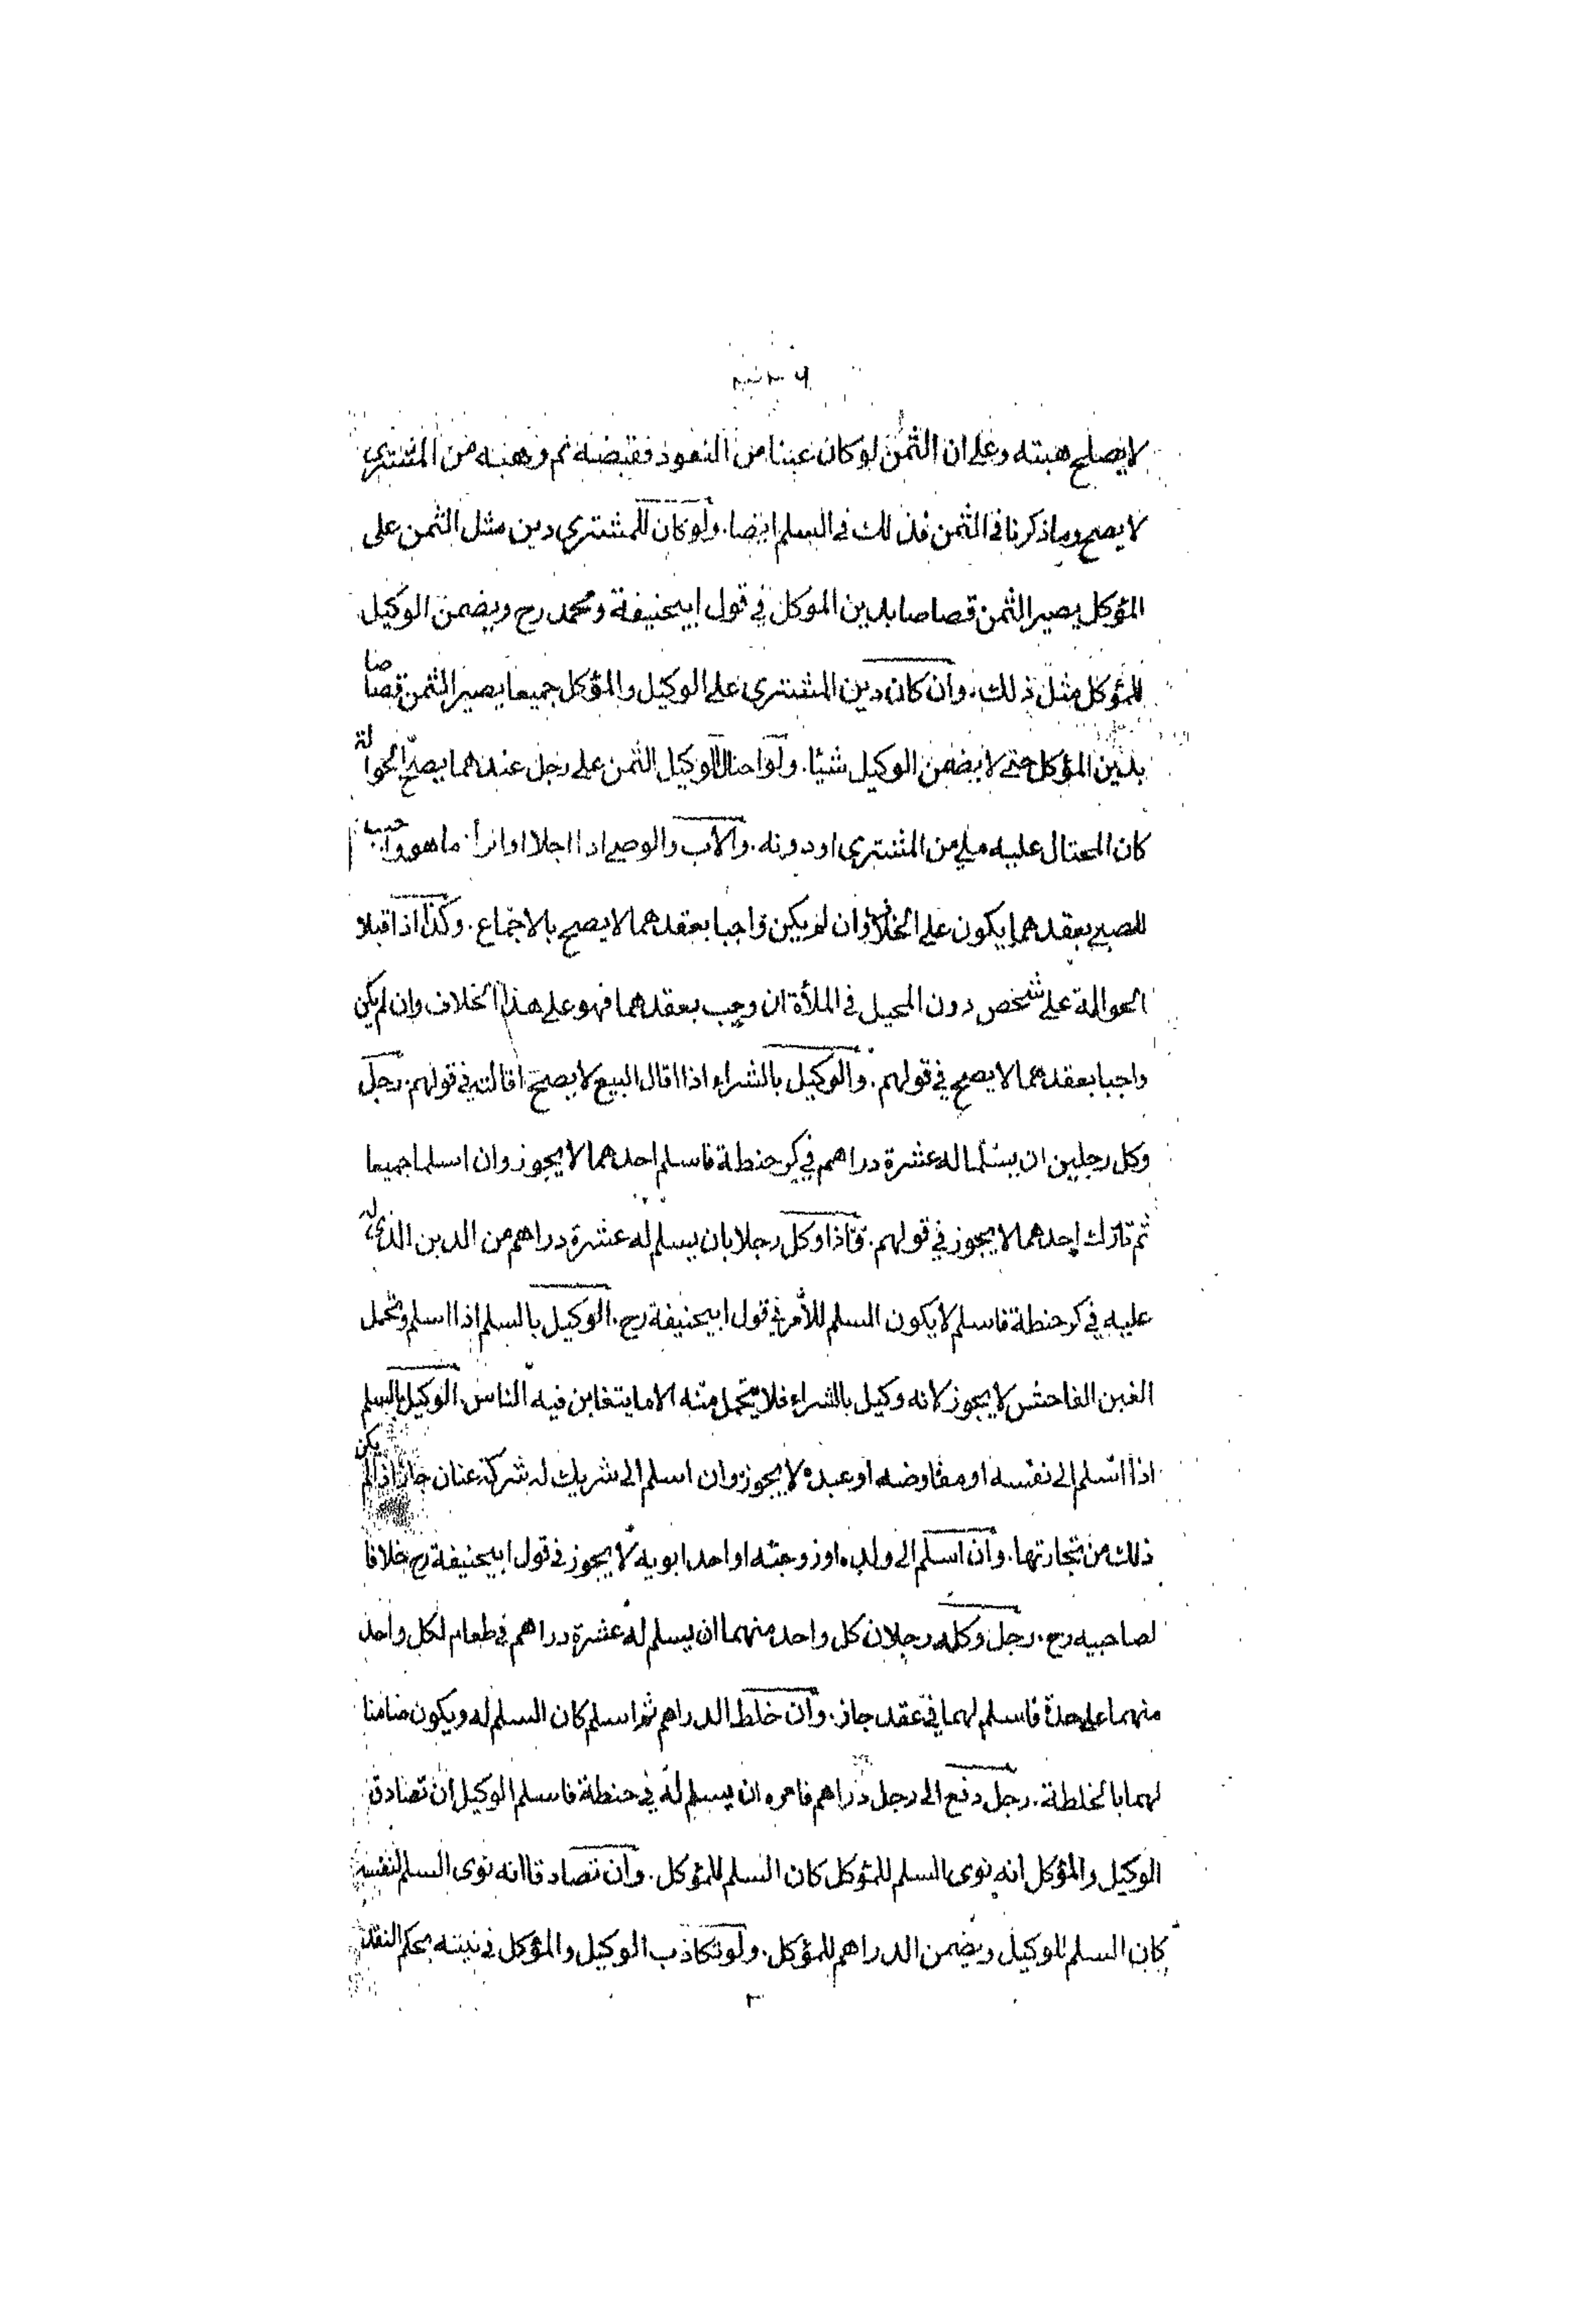 لا يصلح هبته وعلى ان الثمن لو كان عينا من النقود فقبضه ثم وهبه من المشترى
لا يصح وما ذكرنا فى الثمن فذلك فى السلم ايضا. ولو كان للمشترى دين مثل الثمن على
المؤكل يصير الثمن قصاصا بدين الموكل في قول ابيحنيفة ومحمد رح ويضمن الوكيل
للمؤكل مثل ذلك. وان كان دين المشترى على الوكيل والمؤكل جميعا يصير الثمن قصاصا
بدين المؤكل حتى لا يضمن الوكيل شيئا. ولو احتال الوكيل الثمن على رجل عندهما يصح الحوالة
كان المحتال عليه ملي من المشترى او دونه. والاب والوصي اذا اجلا او ابرأ ما هو واجب
للصبي بعقدهما يكون على الخلاف وان لم يكن واجبا بعقدهما لا يصح بالاجماع. وكذا اذا قبلا
الحوالة على شخص دون المحيل فى الملأة ان وجب بعقدهما فهو على هذا الخلاف وان لم يكن
واجبا بعقدهما لا يصح في قولهم. والوكيل بالشراء اذا اقال البيع لا يصح اقالته فى قولهم. رجل
وكل رجلين ان يسلما له عشرة دراهم في كر حنطة فاسلم احدهما لا يجوز وان اسلما جميعا
ثم تارك احدهما لا يجوز في قولهم. واذا وكل رجلا بان يسلم له عشرة دراهم من الدين الذى له
عليه في كر حنطة فاسلم لا يكون السلم للآمر في قول ابيحنيفة رح. الوكيل بالسلم اذا اسلم وتحمل
الغبن الفاحش لا يجوز لانه وكيل بالشراء فلا يتحمل منه الا ما يتغابن فيه الناس. الوكيل بالسلم
اذا اسلم الى نفسه او مفاوضه او عبده لا يجوز وان اسلم الى شريك له شركة عنان جاز اذا لم يكن
ذلك من تجارتها. وان اسلم الى ولده او زوجته او احد ابويه لا يجوز فى قول ابيحنيفة رح خلافا
لصاحبيه رح. رجل وكله رجلان كل واحد منهما ان يسلم له عشرة دراهم في طعام لكل واحد
منهما على حدة فاسلم لهما في عقد جاز. وان خلط الدراهم ثم اسلم كان السلم له ويكون ضامنا
لهما بالخلطة. رجل دفع الى رجل دراهم فامره ان يسلم له في حنطة فاسلم الوكيل ان تصادق
الوكيل والمؤكل انه نوى السلم للمؤكل كان السلم للمؤكل. وان تصادقا انه نوى السلم لنفسه
كان السلم للوكيل ويضمن الدراهم للمؤكل. ولو تكاذب الوكيل والمؤكل فى نيته يحكم النقد